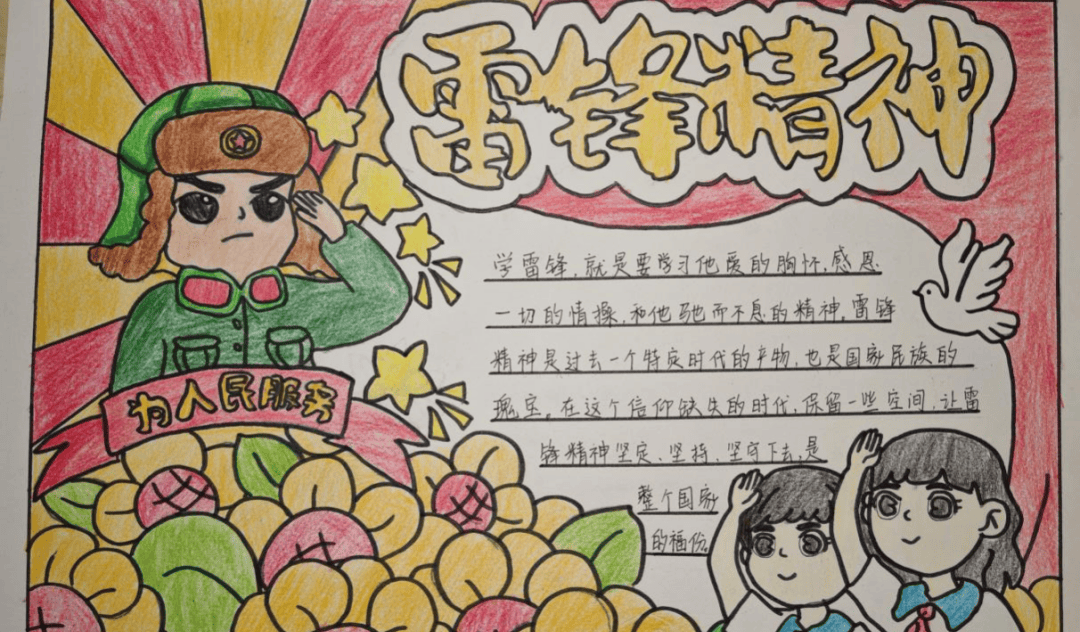 雷锋精神
学雷锋,就是要学习他爱的胸怀,感恩
一切的情操,和他驰而不息的精神。雷锋
精神是过去一个特定时代的产物,也是国家民族的
瑰宝。在这个信仰缺失的时代,保留一些空间,让雷
锋精神坚定、坚持、坚守下去,是
整个国家
的福份。
为人民服务